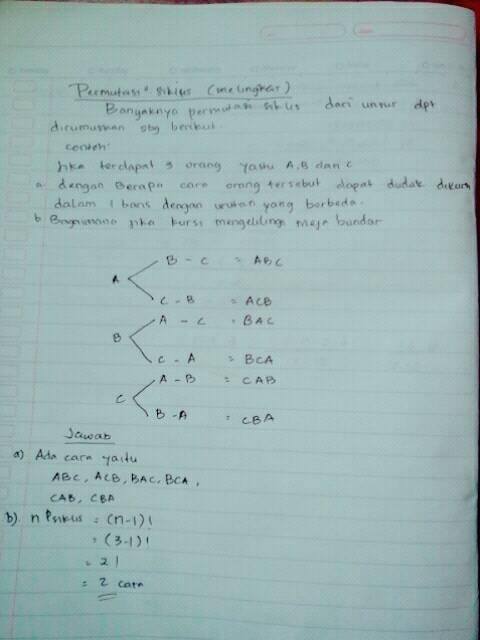 Permutasi² siklus (melingkar)
Banyaknya permutasi siklus dari unsur dpt
dirumuskan sbg berikut.
contoh:
Jika terdapat 3 orang yaitu A, B dan C
a. dengan Berapa cara orang tersebut dapat duduk dikursi
dalam 1 baris dengan urutan yang berbeda.
b Bagaimana jika kursi mengelilingi meja bundar
B - C = ABC
A
C - B = ACB
A - C = BAC
B
C - A = BCA
A - B = CAB
C
B - A = CBA
Jawab
a) Ada cara yaitu
ABC, ACB, BAC, BCA,
CAB, CBA
b). n Psiklus = (n-1)!
= (3-1)!
= 2!
= 2 cara